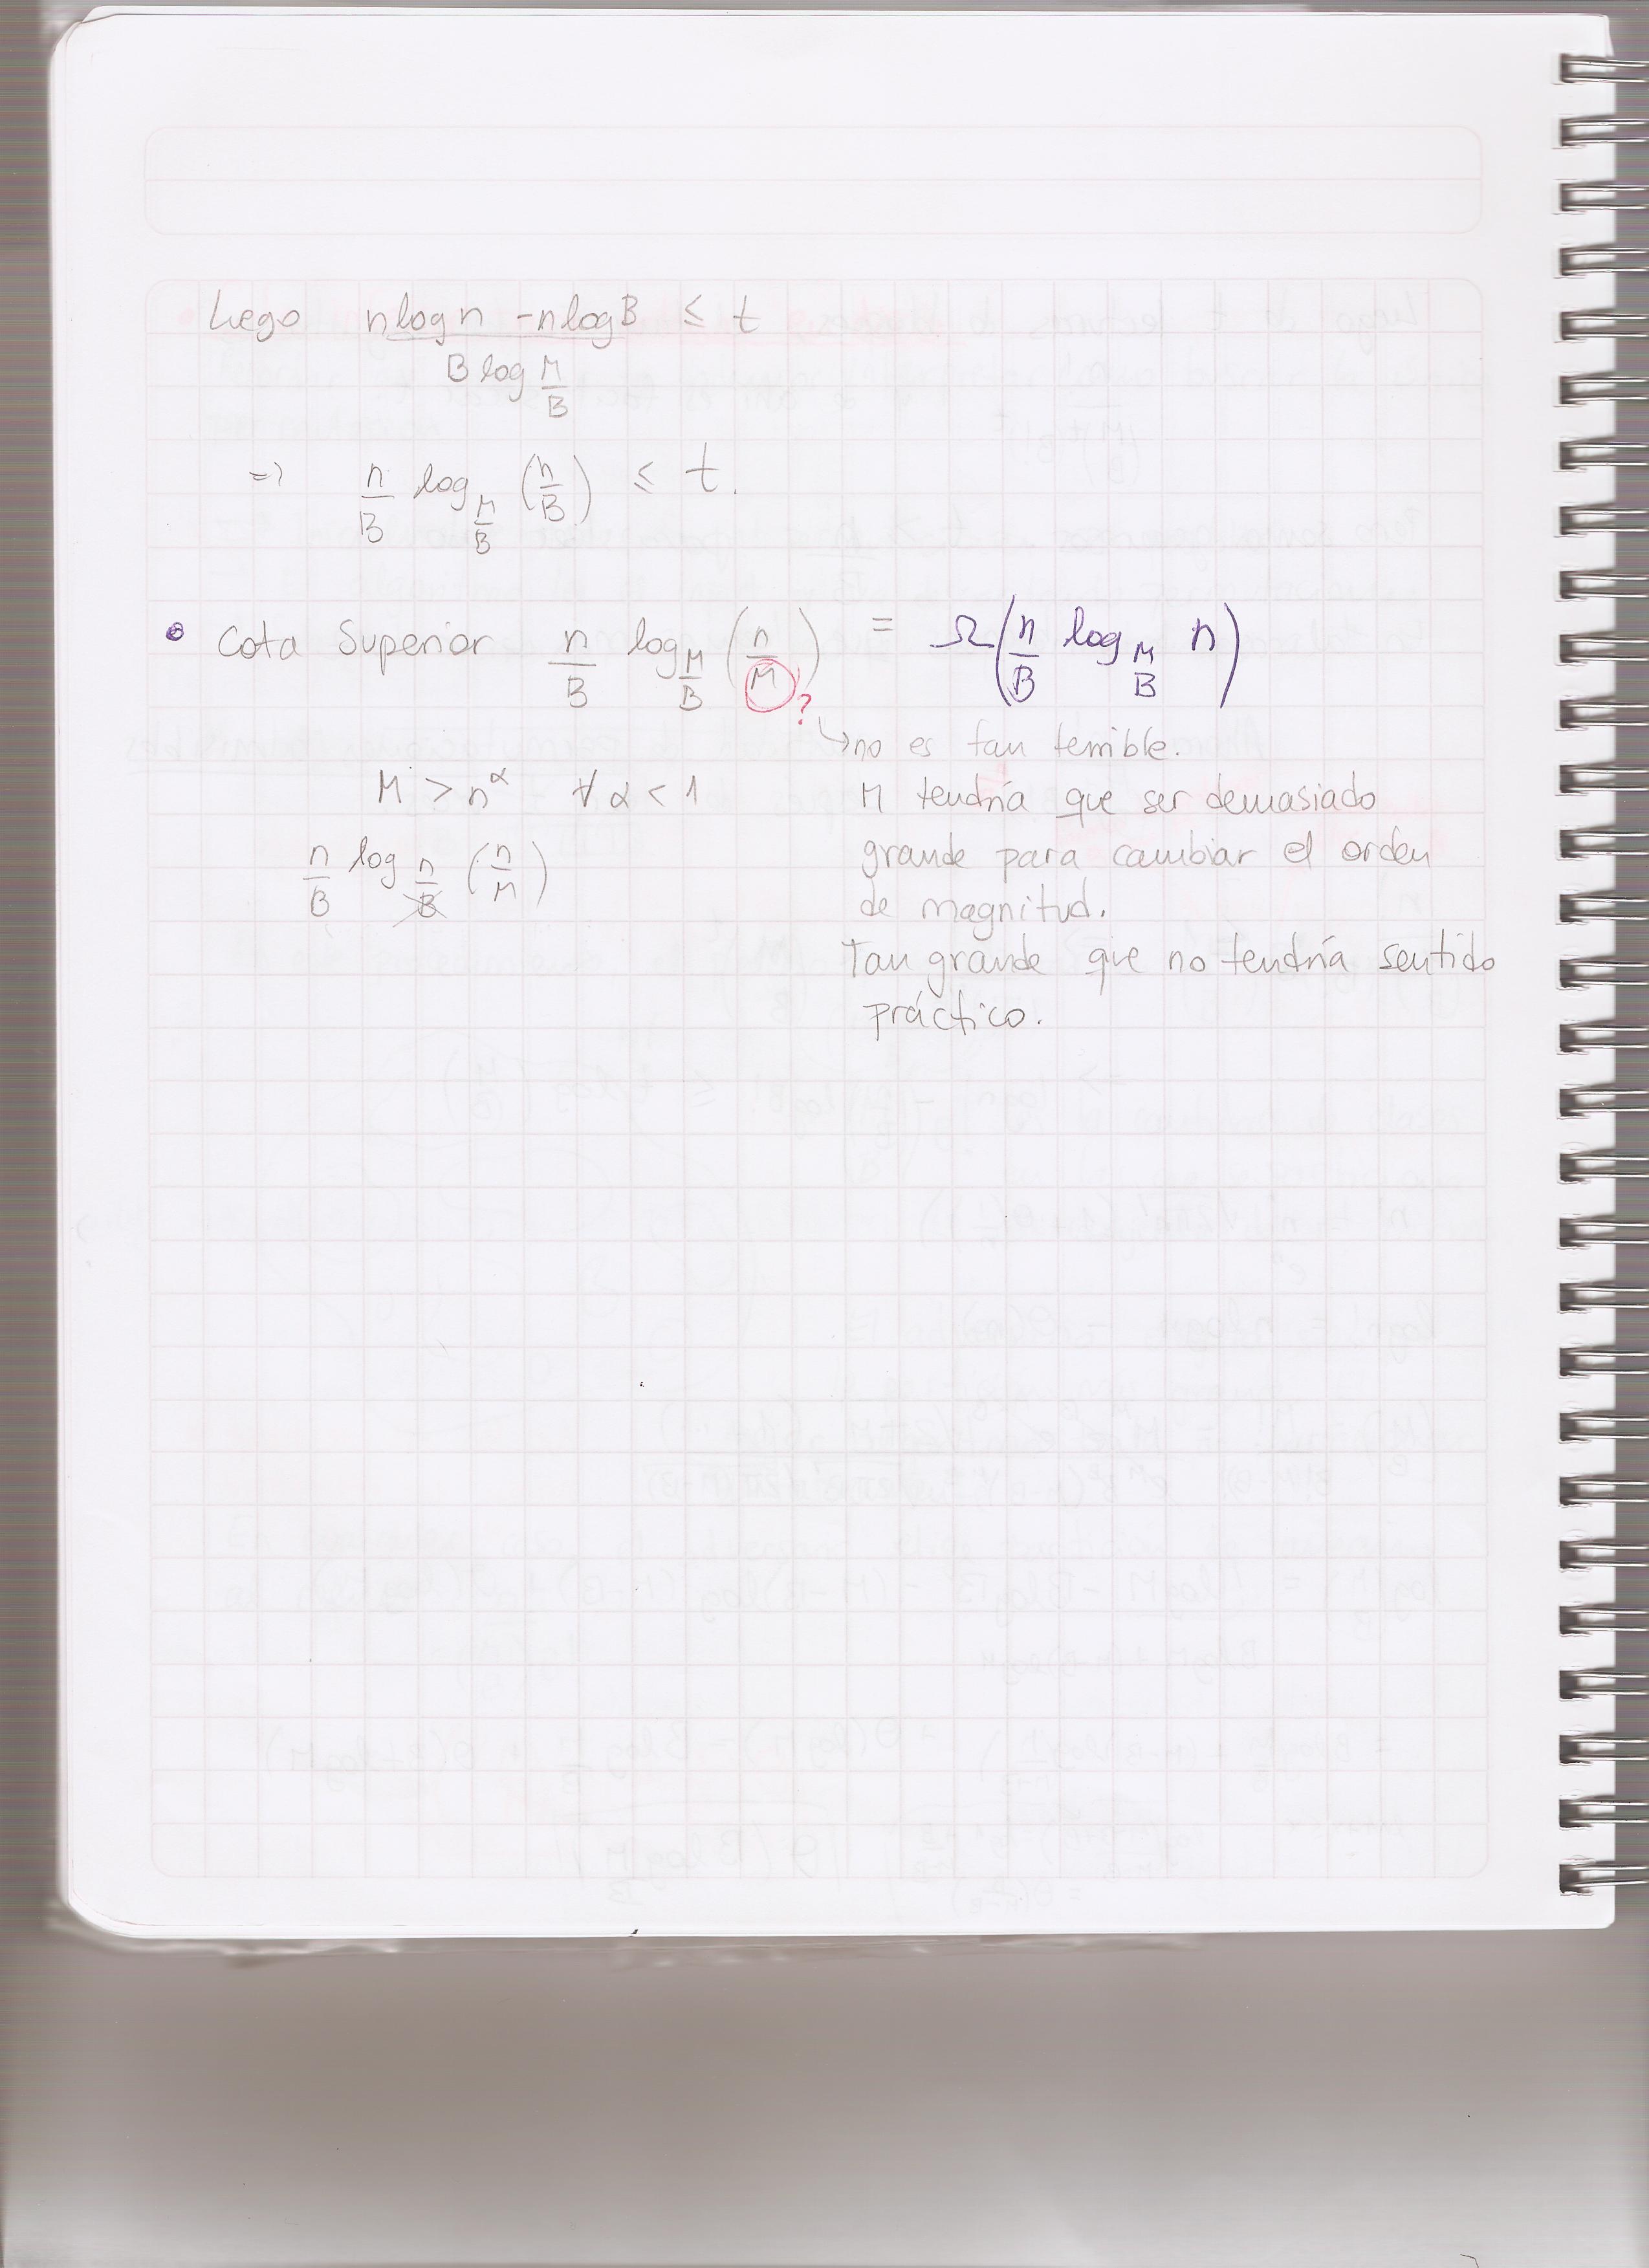 Luego n log n - n log B ≤ t
B log M/B
=> n/B log_{M/B} (n/B) ≤ t.
• Cota Superior n/B log_{M/B} (n/M) = Ω(n/B log_{M/B} n)
?
↳ no es tan terrible.
M > n^α ∀ α < 1
M tendría que ser demasiado
n/B log_{n/B} (n/M)
grande para cambiar el orden
de magnitud.
Tan grande que no tendría sentido
práctico.